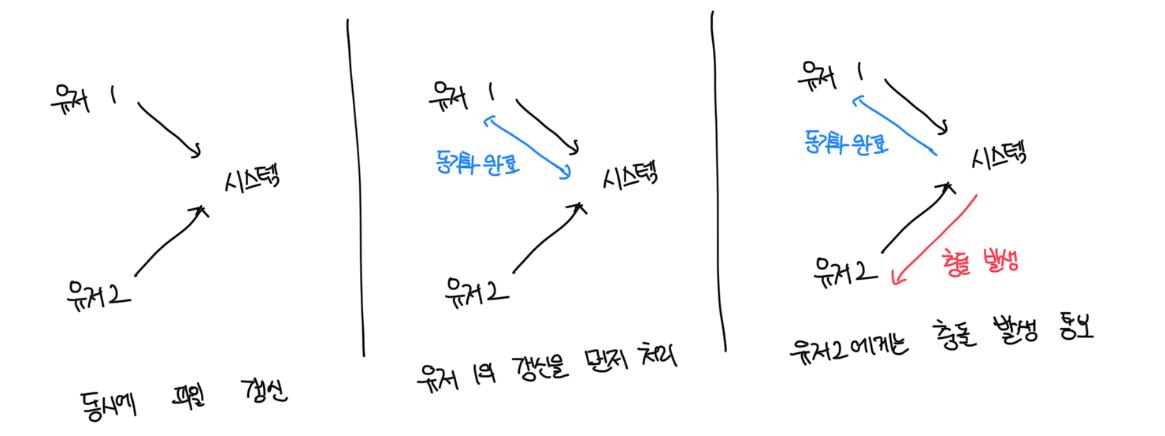 유저 1
시스템
유저2
동시에 파일 갱신
유저 1
동기화 완료
시스템
유저2
유저 1의 갱신을 먼저 처리
유저 1
동기화 완료
시스템
유저2
충돌 발생
유저2에게는 충돌 발생 통보